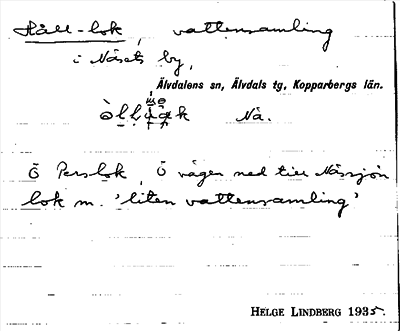 Håll-lok, vattensamling
i Näsets by,
Älvdalens sn, Älvdals tg, Kopparbergs län.
Nä.
Ö Perslok, Ö vägen ned till Nässjön
lok m. 'liten vattensamling'
HELGE LINDBERG 1935.